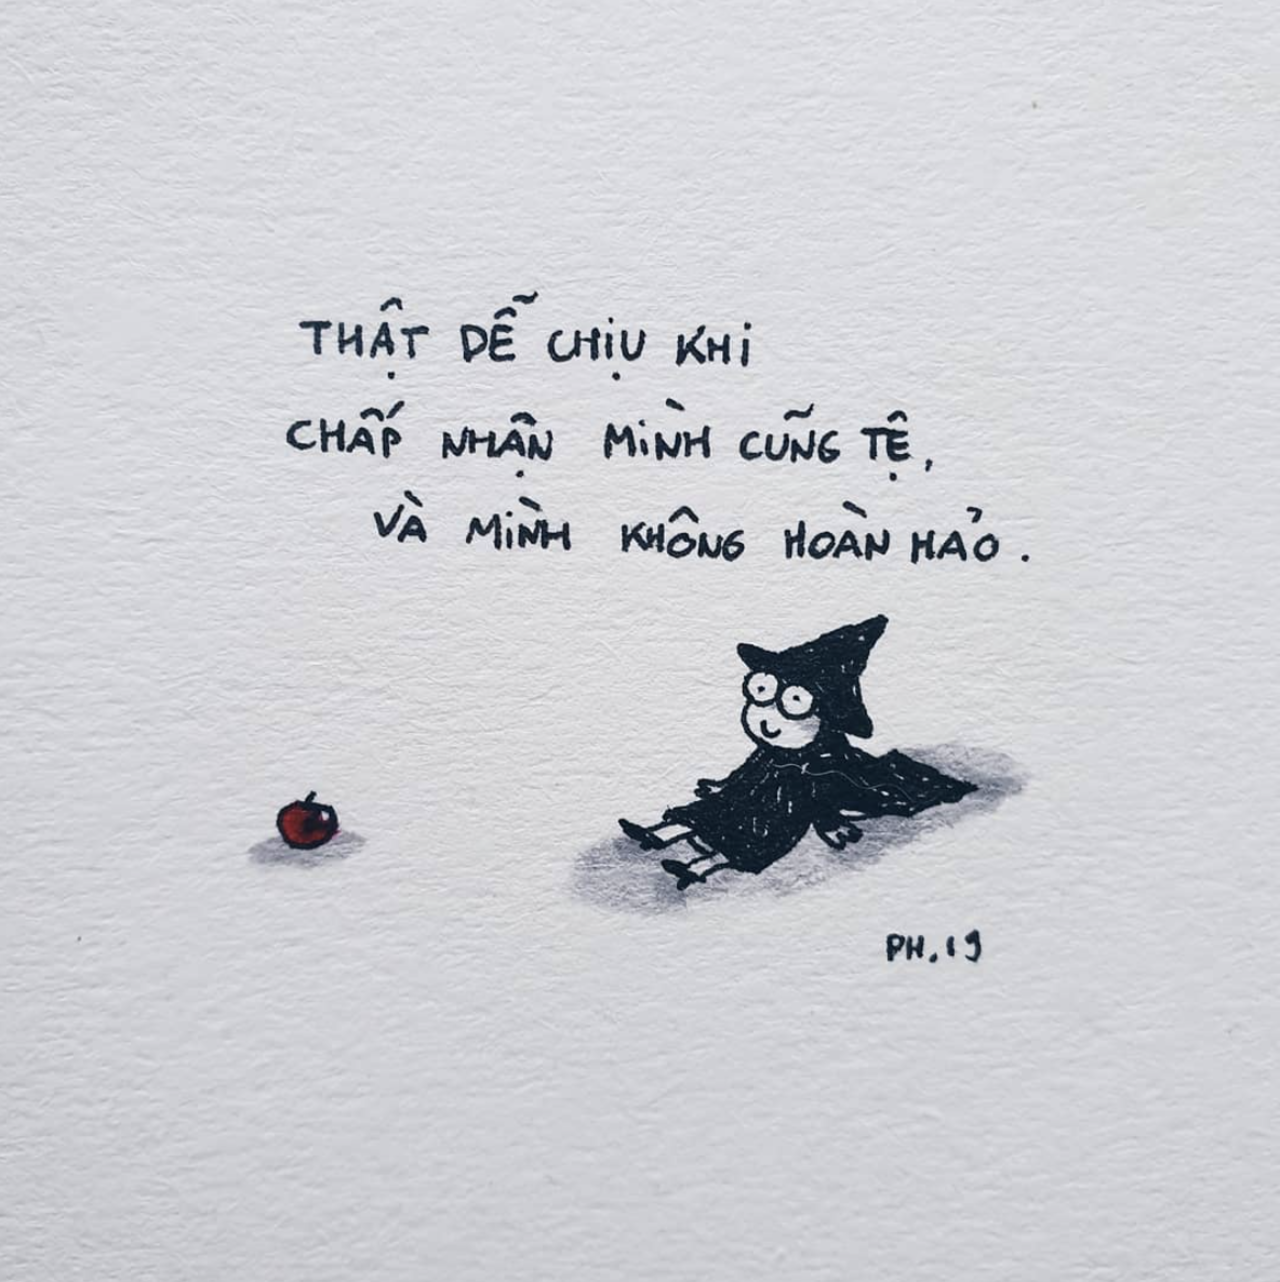 THẬT DỄ CHỊU KHI
CHẤP NHẬN MÌNH CŨNG TỆ,
VÀ MÌNH KHÔNG HOÀN HẢO.
PH.19